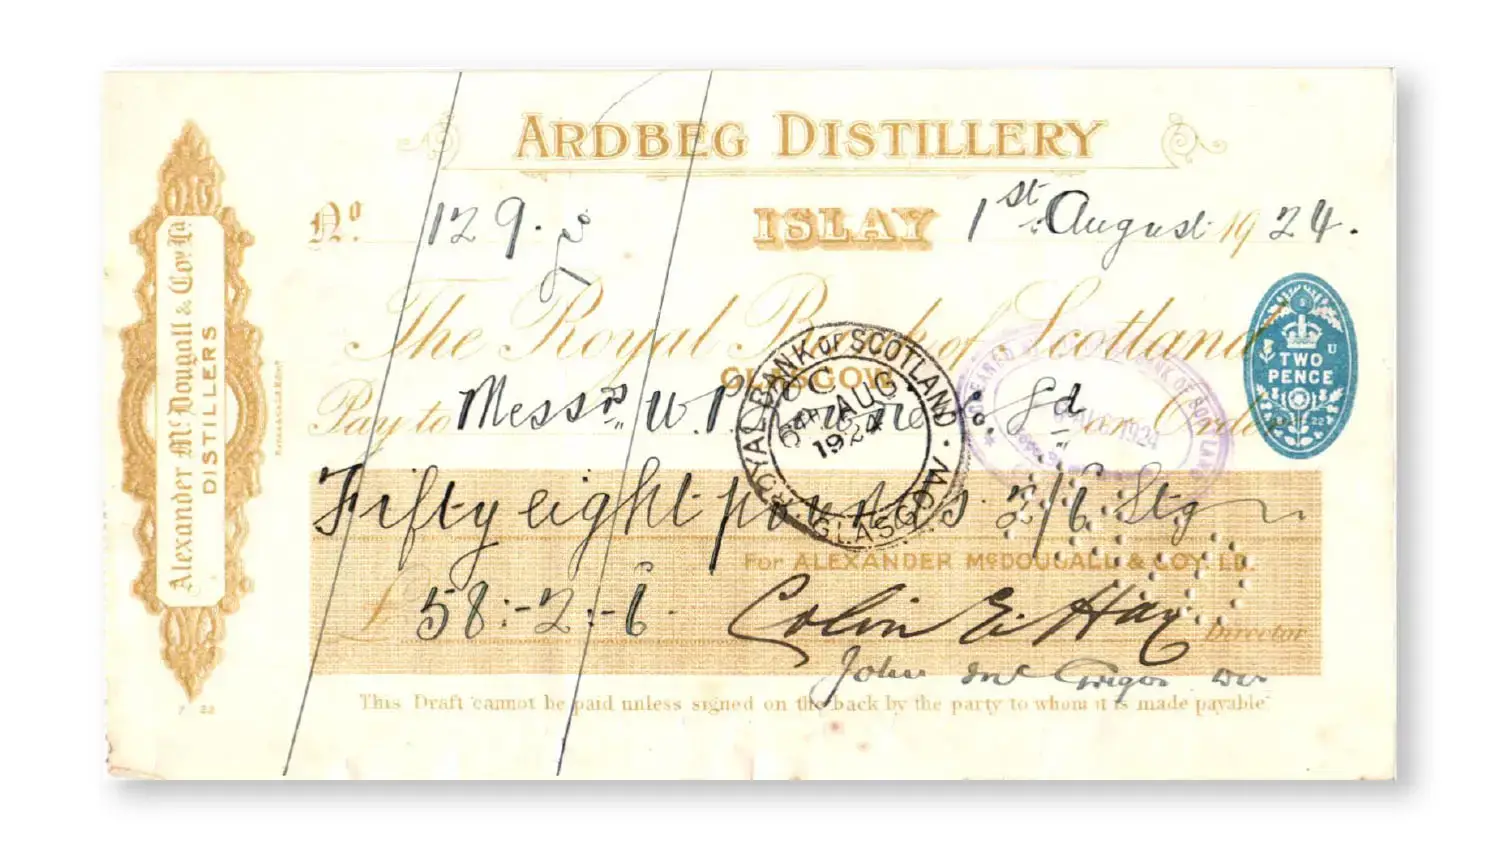 ARDBEG DISTILLERY
No. 129.
ISLAY 1st August 1924.
The Royal Bank of Scotland
GLASGOW
Pay to Messrs W. P. Co. Ld or Order
Fifty eight pounds 2/6 Stg
For ALEXANDER McDOUGALL & COY. LD.
£ 58:-2:-6
Colin E. Hay
Director
John McGregor Dir
This Draft cannot be paid unless signed on the back by the party to whom it is made payable
Alexander McDougall & Coy. Ld.
DISTILLERS
ROYAL BANK OF SCOTLAND · GLASGOW
6TH AUG
1924
TWO
PENCE
U
22
7 22